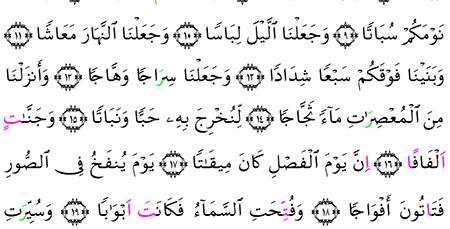 نَوْمَكُمْ سُبَاتًا ﴿٩﴾ وَجَعَلْنَا ٱلَّيْلَ لِبَاسًا ﴿١٠﴾ وَجَعَلْنَا ٱلنَّهَارَ مَعَاشًا ﴿١١﴾
وَبَنَيْنَا فَوْقَكُمْ سَبْعًا شِدَادًا ﴿١٢﴾ وَجَعَلْنَا سِرَاجًا وَهَّاجًا ﴿١٣﴾ وَأَنزَلْنَا
مِنَ ٱلْمُعْصِرَٰتِ مَآءً ثَجَّاجًا ﴿١٤﴾ لِّنُخْرِجَ بِهِۦ حَبًّا وَنَبَاتًا ﴿١٥﴾ وَجَنَّٰتٍ
اَلْفَافًا ﴿١٦﴾ اِنَّ يَوْمَ ٱلْفَصْلِ كَانَ مِيقَٰتًا ﴿١٧﴾ يَوْمَ يُنفَخُ فِى ٱلصُّورِ
فَتَاتُونَ أَفْوَاجًا ﴿١٨﴾ وَفُتِّحَتِ ٱلسَّمَآءُ فَكَانَتَ اَبْوَٰبًا ﴿١٩﴾ وَسُيِّرَتِ